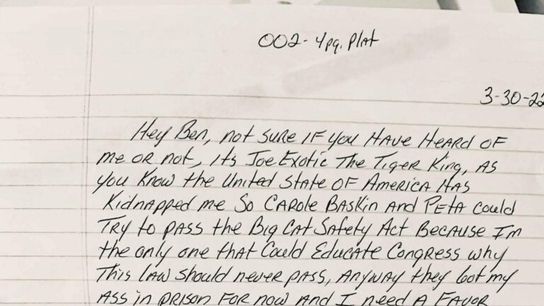 002-4pg. Plat
3-30-22
Hey Ben, not sure IF you Have Heard OF
me or not, its Joe Exotic The Tiger King, As
you Know the United State OF America Has
Kidnapped me So Carole Baskin And Peta could
Try to pass the Big Cat Safety Act Because I'm
the only one that Could Educate Congress why
This Law Should never pass, Anyway they Got my
Ass in prison For now And I need A Favor